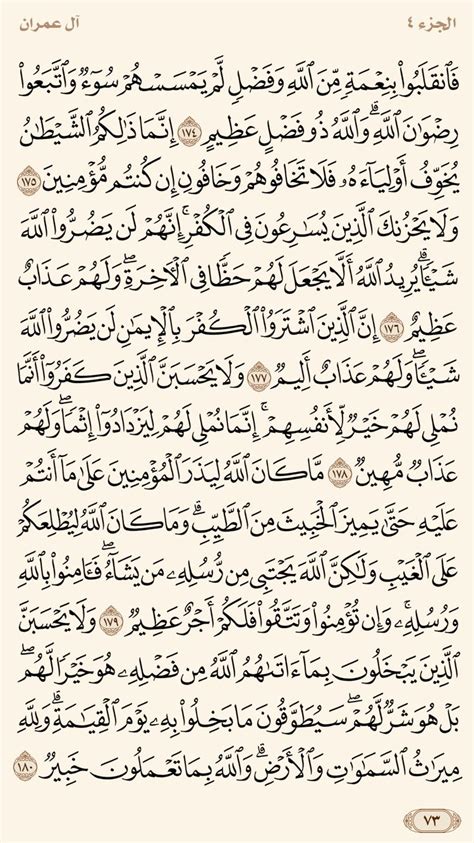 الجزء ٤
آل عمران
فَٱنقَلَبُوا۟ بِنِعْمَةٍ مِّنَ ٱللَّهِ وَفَضْلٍ لَّمْ يَمْسَسْهُمْ سُوٓءٌ وَٱتَّبَعُوا۟
رِضْوَٰنَ ٱللَّهِ ۗ وَٱللَّهُ ذُو فَضْلٍ عَظِيمٍ ١٧٤ إِنَّمَا ذَٰلِكُمُ ٱلشَّيْطَٰنُ
يُخَوِّفُ أَوْلِيَآءَهُۥ فَلَا تَخَافُوهُمْ وَخَافُونِ إِن كُنتُم مُّؤْمِنِينَ ١٧٥
وَلَا يَحْزُنكَ ٱلَّذِينَ يُسَٰرِعُونَ فِى ٱلْكُفْرِ ۚ إِنَّهُمْ لَن يَضُرُّوا۟ ٱللَّهَ
شَيْـًٔا ۗ يُرِيدُ ٱللَّهُ أَلَّا يَجْعَلَ لَهُمْ حَظًّا فِى ٱلْـَٔاخِرَةِ ۖ وَلَهُمْ عَذَابٌ
عَظِيمٌ ١٧٦ إِنَّ ٱلَّذِينَ ٱشْتَرَوُا۟ ٱلْكُفْرَ بِٱلْإِيمَٰنِ لَن يَضُرُّوا۟ ٱللَّهَ
شَيْـًٔا ۖ وَلَهُمْ عَذَابٌ أَلِيمٌ ١٧٧ وَلَا يَحْسَبَنَّ ٱلَّذِينَ كَفَرُوٓا۟ أَنَّمَا
نُمْلِى لَهُمْ خَيْرٌ لِّأَنفُسِهِمْ ۚ إِنَّمَا نُمْلِى لَهُمْ لِيَزْدَادُوٓا۟ إِثْمًا ۚ وَلَهُمْ
عَذَابٌ مُّهِينٌ ١٧٨ مَّا كَانَ ٱللَّهُ لِيَذَرَ ٱلْمُؤْمِنِينَ عَلَىٰ مَآ أَنتُمْ
عَلَيْهِ حَتَّىٰ يَمِيزَ ٱلْخَبِيثَ مِنَ ٱلطَّيِّبِ ۗ وَمَا كَانَ ٱللَّهُ لِيُطْلِعَكُمْ
عَلَى ٱلْغَيْبِ وَلَٰكِنَّ ٱللَّهَ يَجْتَبِى مِن رُّسُلِهِۦ مَن يَشَآءُ ۖ فَـَٔامِنُوا۟ بِٱللَّهِ
وَرُسُلِهِۦ ۚ وَإِن تُؤْمِنُوا۟ وَتَتَّقُوا۟ فَلَكُمْ أَجْرٌ عَظِيمٌ ١٧٩ وَلَا يَحْسَبَنَّ
ٱلَّذِينَ يَبْخَلُونَ بِمَآ ءَاتَىٰهُمُ ٱللَّهُ مِن فَضْلِهِۦ هُوَ خَيْرًا لَّهُم ۖ
بَلْ هُوَ شَرٌّ لَّهُمْ ۖ سَيُطَوَّقُونَ مَا بَخِلُوا۟ بِهِۦ يَوْمَ ٱلْقِيَٰمَةِ ۗ وَلِلَّهِ
مِيرَٰثُ ٱلسَّمَٰوَٰتِ وَٱلْأَرْضِ ۗ وَٱللَّهُ بِمَا تَعْمَلُونَ خَبِيرٌ ١٨٠
٧٣